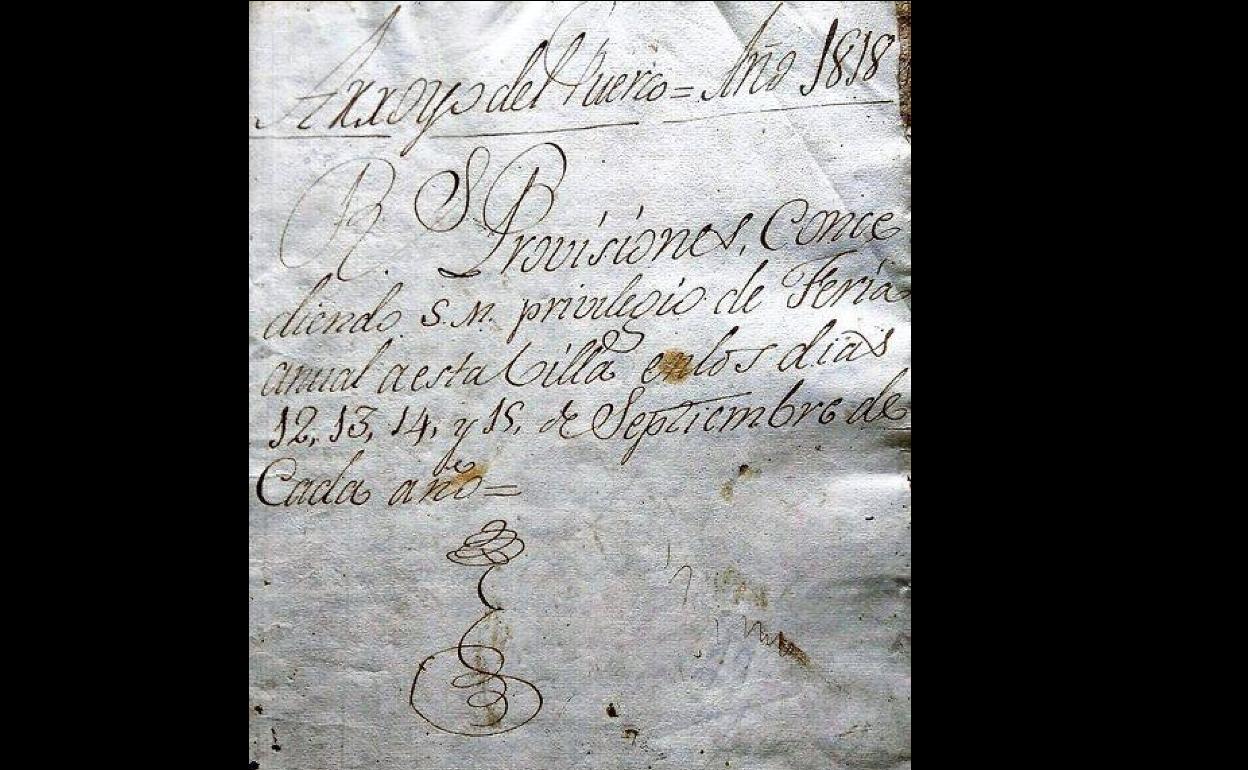 Arroyo del Puerco = Año 1818
R. S.
Provisiones, Conce
diendo S. M. privilegio de Feria
anual a esta Villa en los dias
12, 13, 14, y 15, de Septiembre de
Cada año =